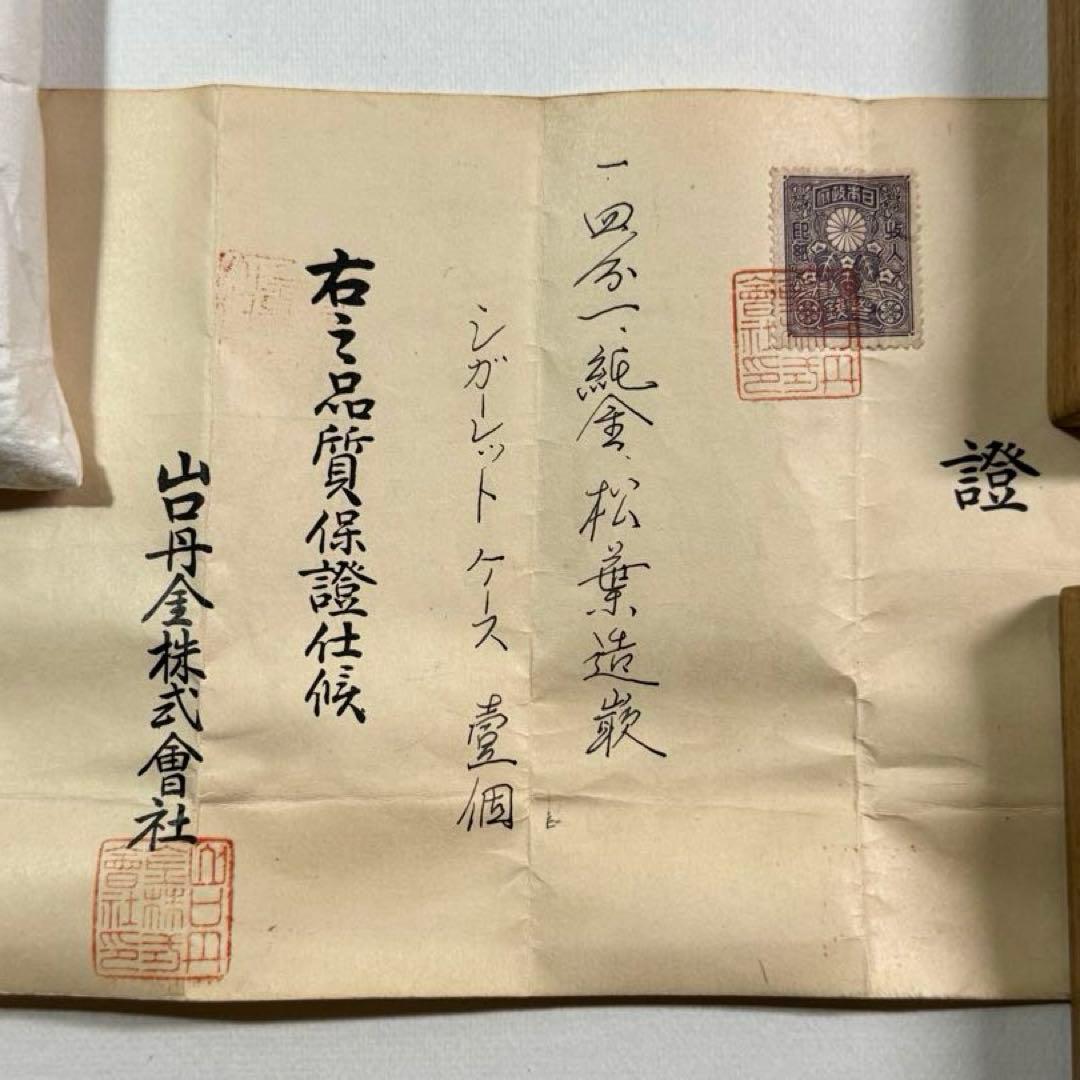 證
日本政府
收入
印紙
一、四分一、純金、松葉造嵌
シガーレットケース 壹個
右之品質保證仕候
山口丹金株式會社
山口丹
金株式
會社印